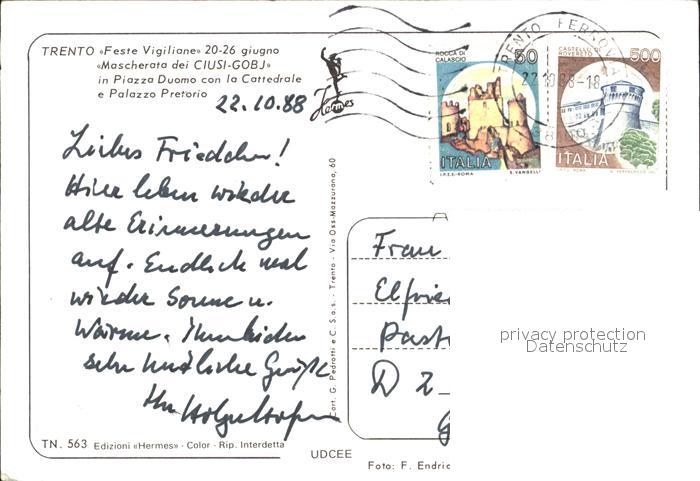 TRENTO «Feste Vigiliane» 20-26 giugno
«Mascherata dei CIUSI-GOBJ»
in Piazza Duomo con la Cattedrale
e Palazzo Pretorio
Hermes
22.10.88
Liebes Friedchen!
Hier leben wieder
alte Erinnerungen
auf. Endlich mal
wieder Sonne u.
Wärme. Ihnen beiden
sehr herzliche Grüße
Ihr
TN. 563 Edizioni «Hermes» - Color - Rip. Interdetta
Cart. G. Pedrotti e C. S.a.s. - Trento - Via Oss-Mazzurana, 60
ROCCA DI
CALASCIO
50
ITALIA
I.P.Z.S.-ROMA E. VANGELLI
CASTELLO DI
ROVERETO
500
ITALIA
TRENTO FERROV
22.10.88-18
Frau
Elfrie
Past
D 2
privacy protection
Datenschutz
UDCEE
Foto: F. Endric